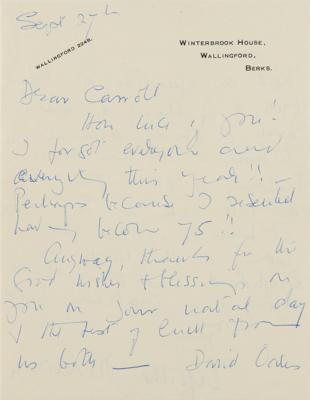 Sept 27th
WALLINGFORD 2248.
WINTERBROOK HOUSE,
WALLINGFORD,
BERKS.
Dear Carroll
How nice of you!
I forgot everyone and
everything this year!! —
Perhaps because I resented
having become 75!!
Anyway, thanks for the
good wishes & blessings on
you on your natal day
& the best of luck from
us both —